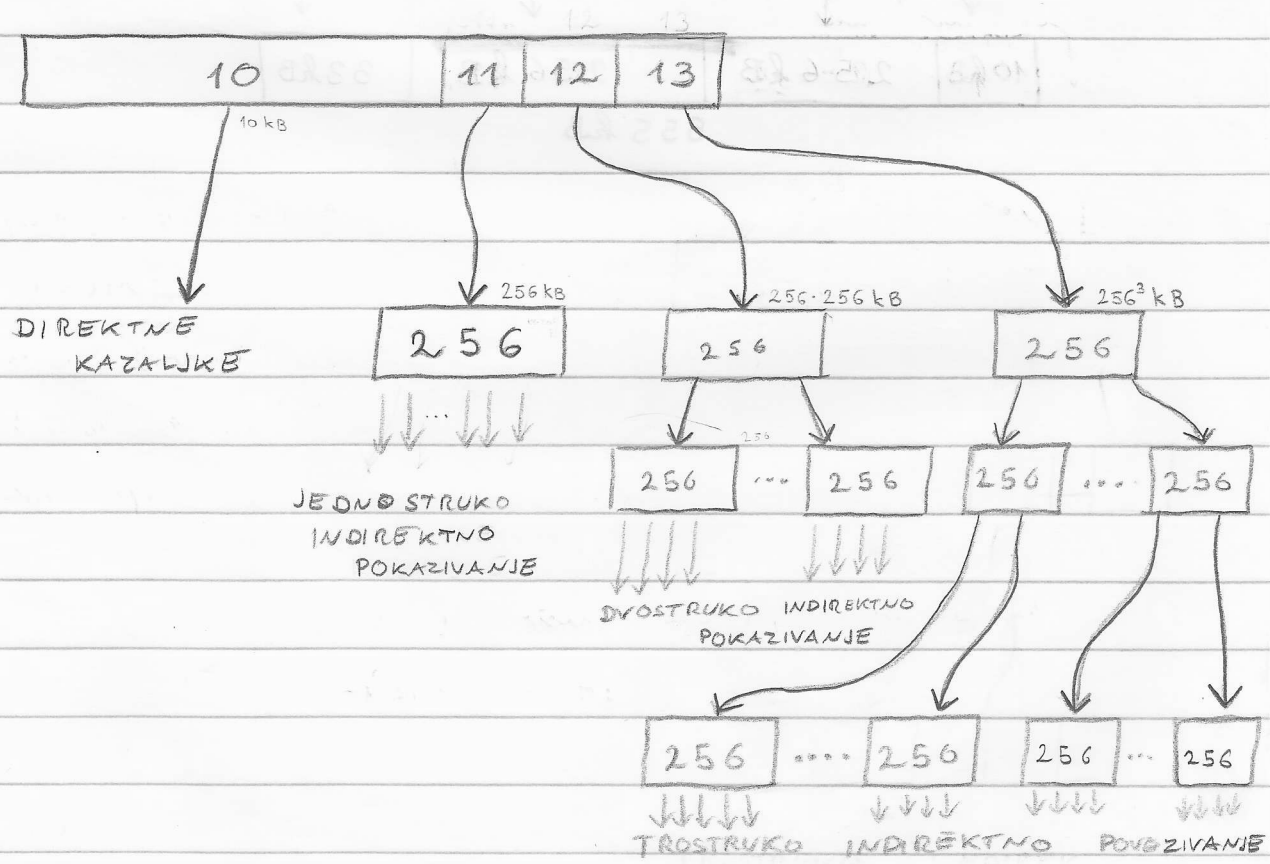 10 11 12 13
10 kB
256 kB 256·256 kB 256³ kB
DIREKTNE
KAZALJKE
256 256 256
...
256
256 ... 256 256 .... 256
JEDNOSTRUKO
INDIREKTNO
POKAZIVANJE
DVOSTRUKO INDIREKTNO
POKAZIVANJE
256 .... 256 256 ... 256
TROSTRUKO INDIREKTNO